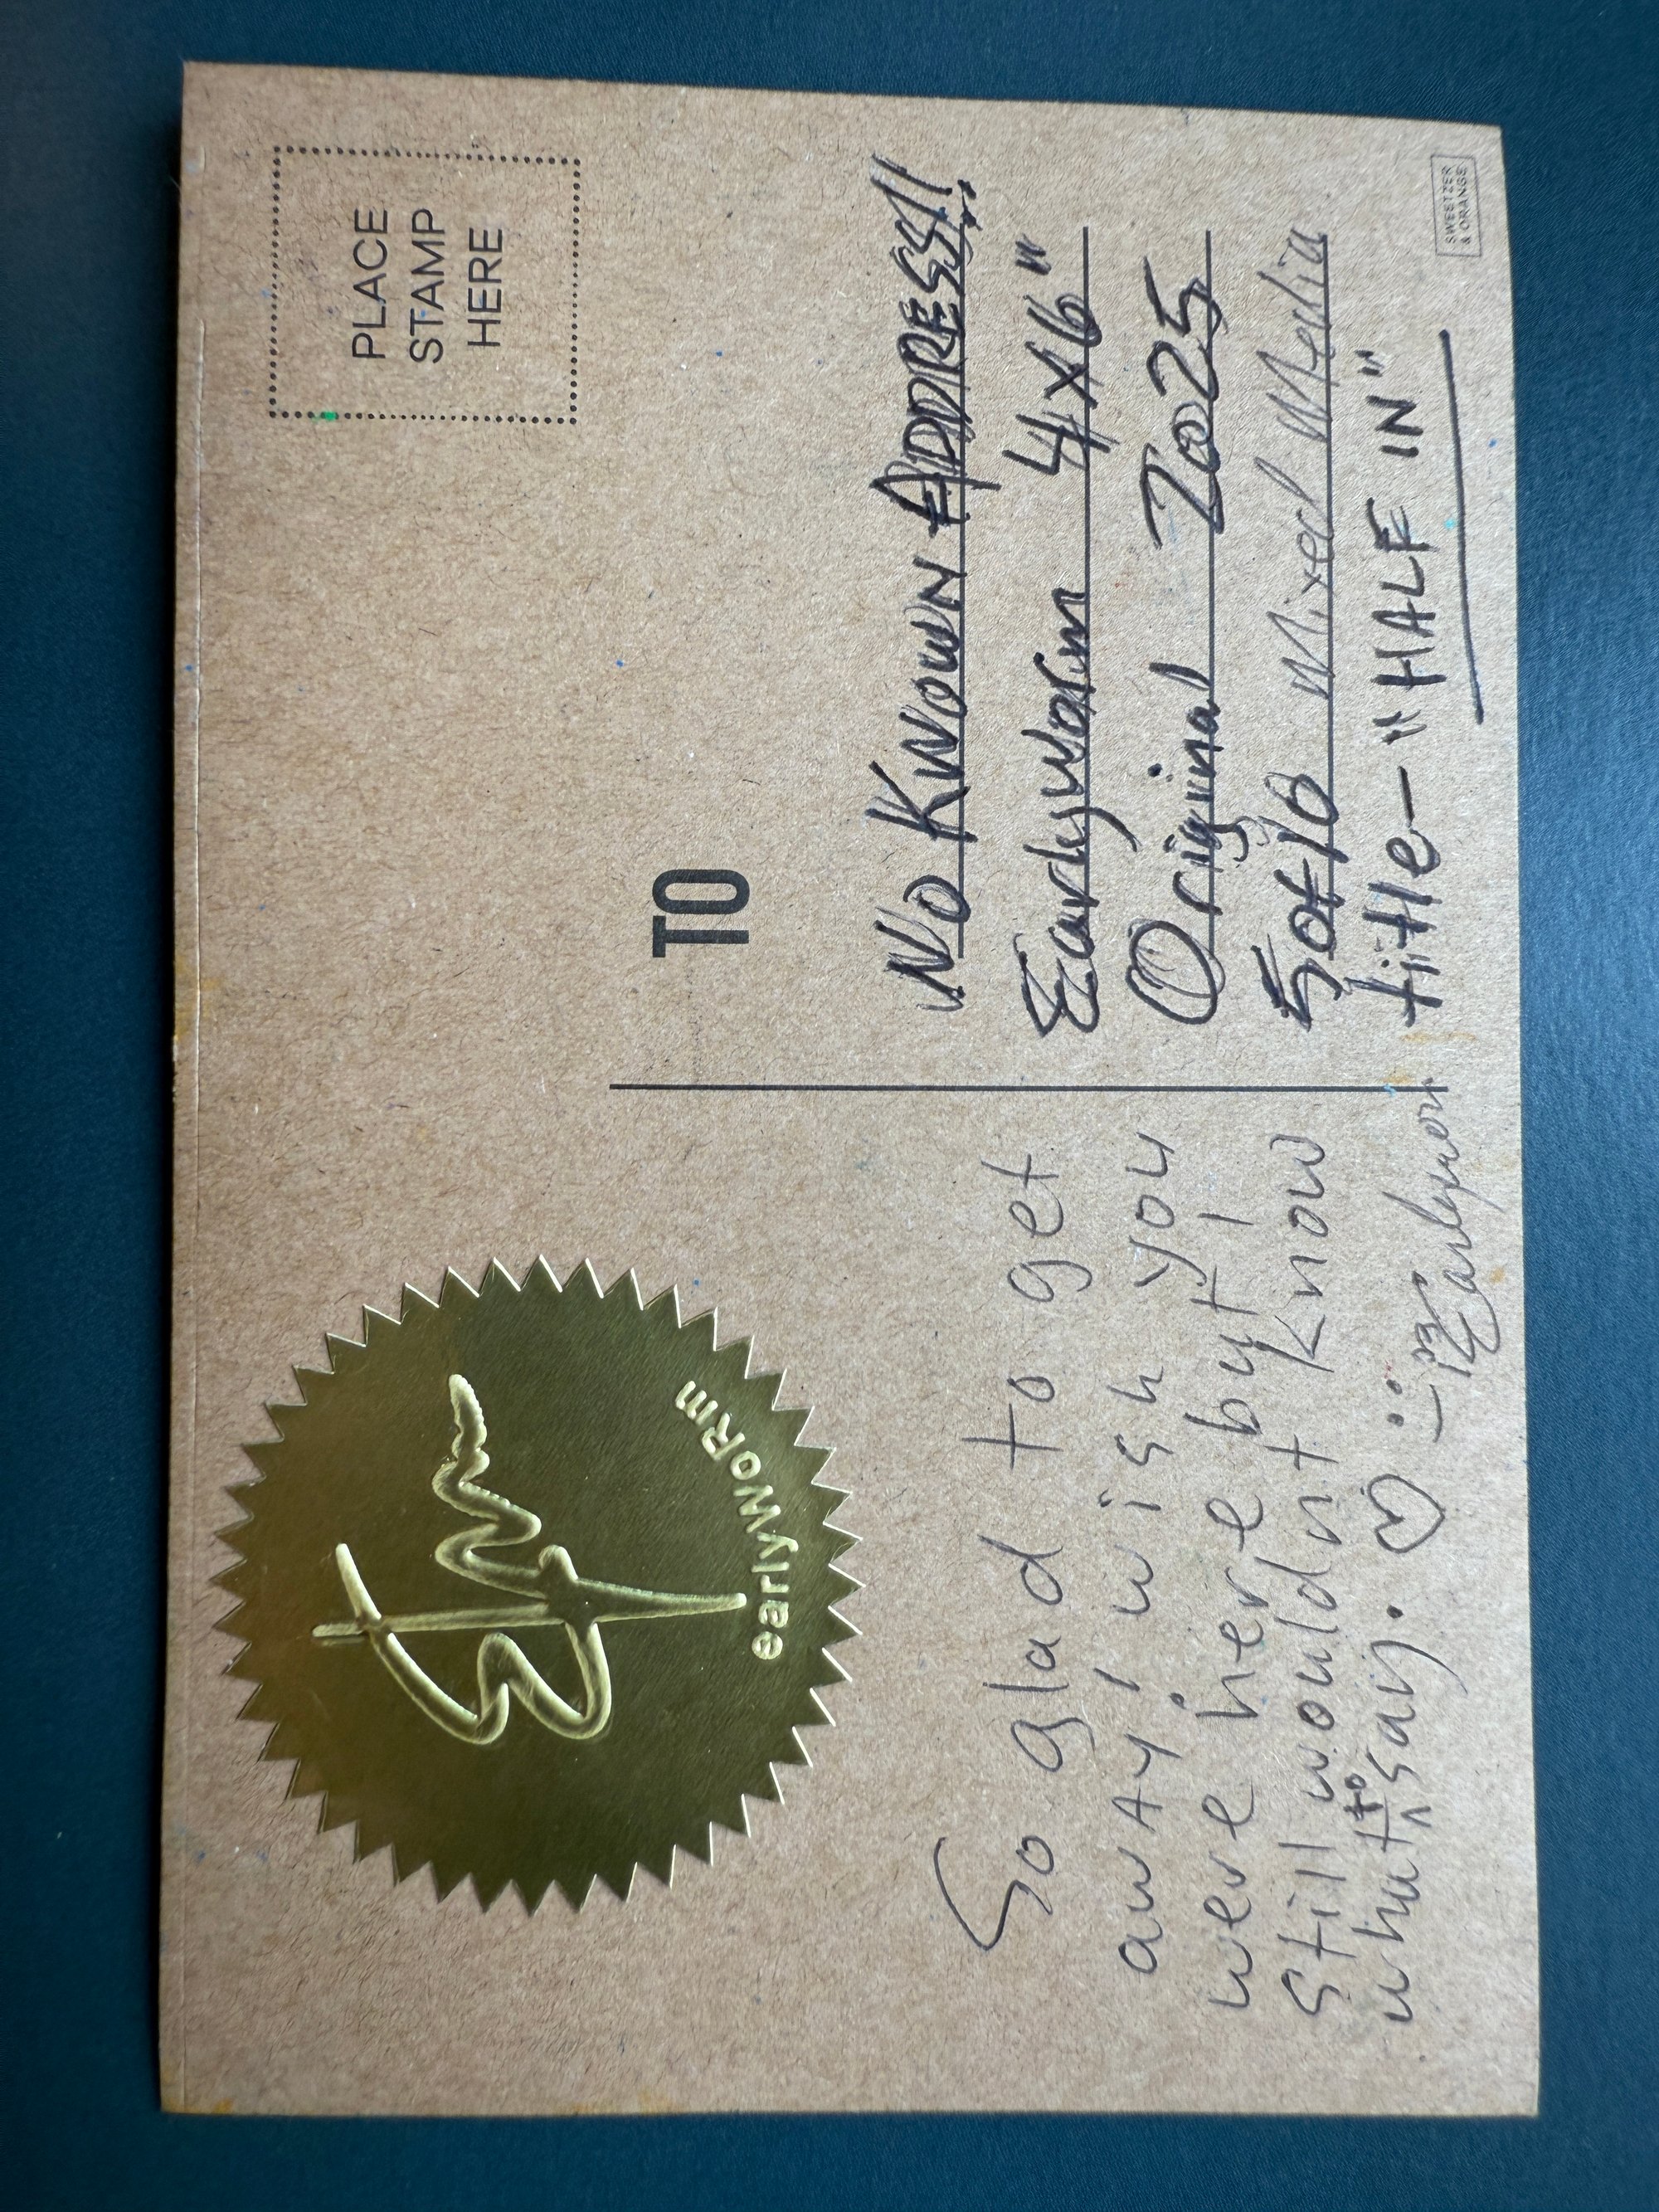 PLACE
STAMP
HERE
earlyWORm
TO
So glad to get
away! wish you
were here but I
still wouldnt know
what to say. ♡ :)
Earlyworm
No KNOWN ADDRESS!!
Earlyworm 4x6"
Original 2025
5 of 10 Mixed Media
title - "HALF IN"
SWEETZER
& ORANGE